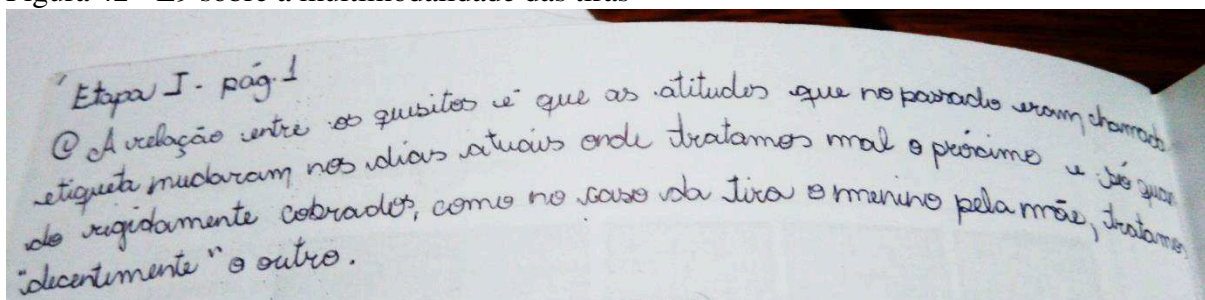 Etapa I - pág. 1
@ A relação entre os quisitos é que as atitudes que no passado eram chamada
etiqueta mudaram nos dias atuais onde tratamos mal o próximo e só quan
do rigidamente cobrados, como no caso da tira o menino pela mãe, tratamos
"decentemente" o outro.